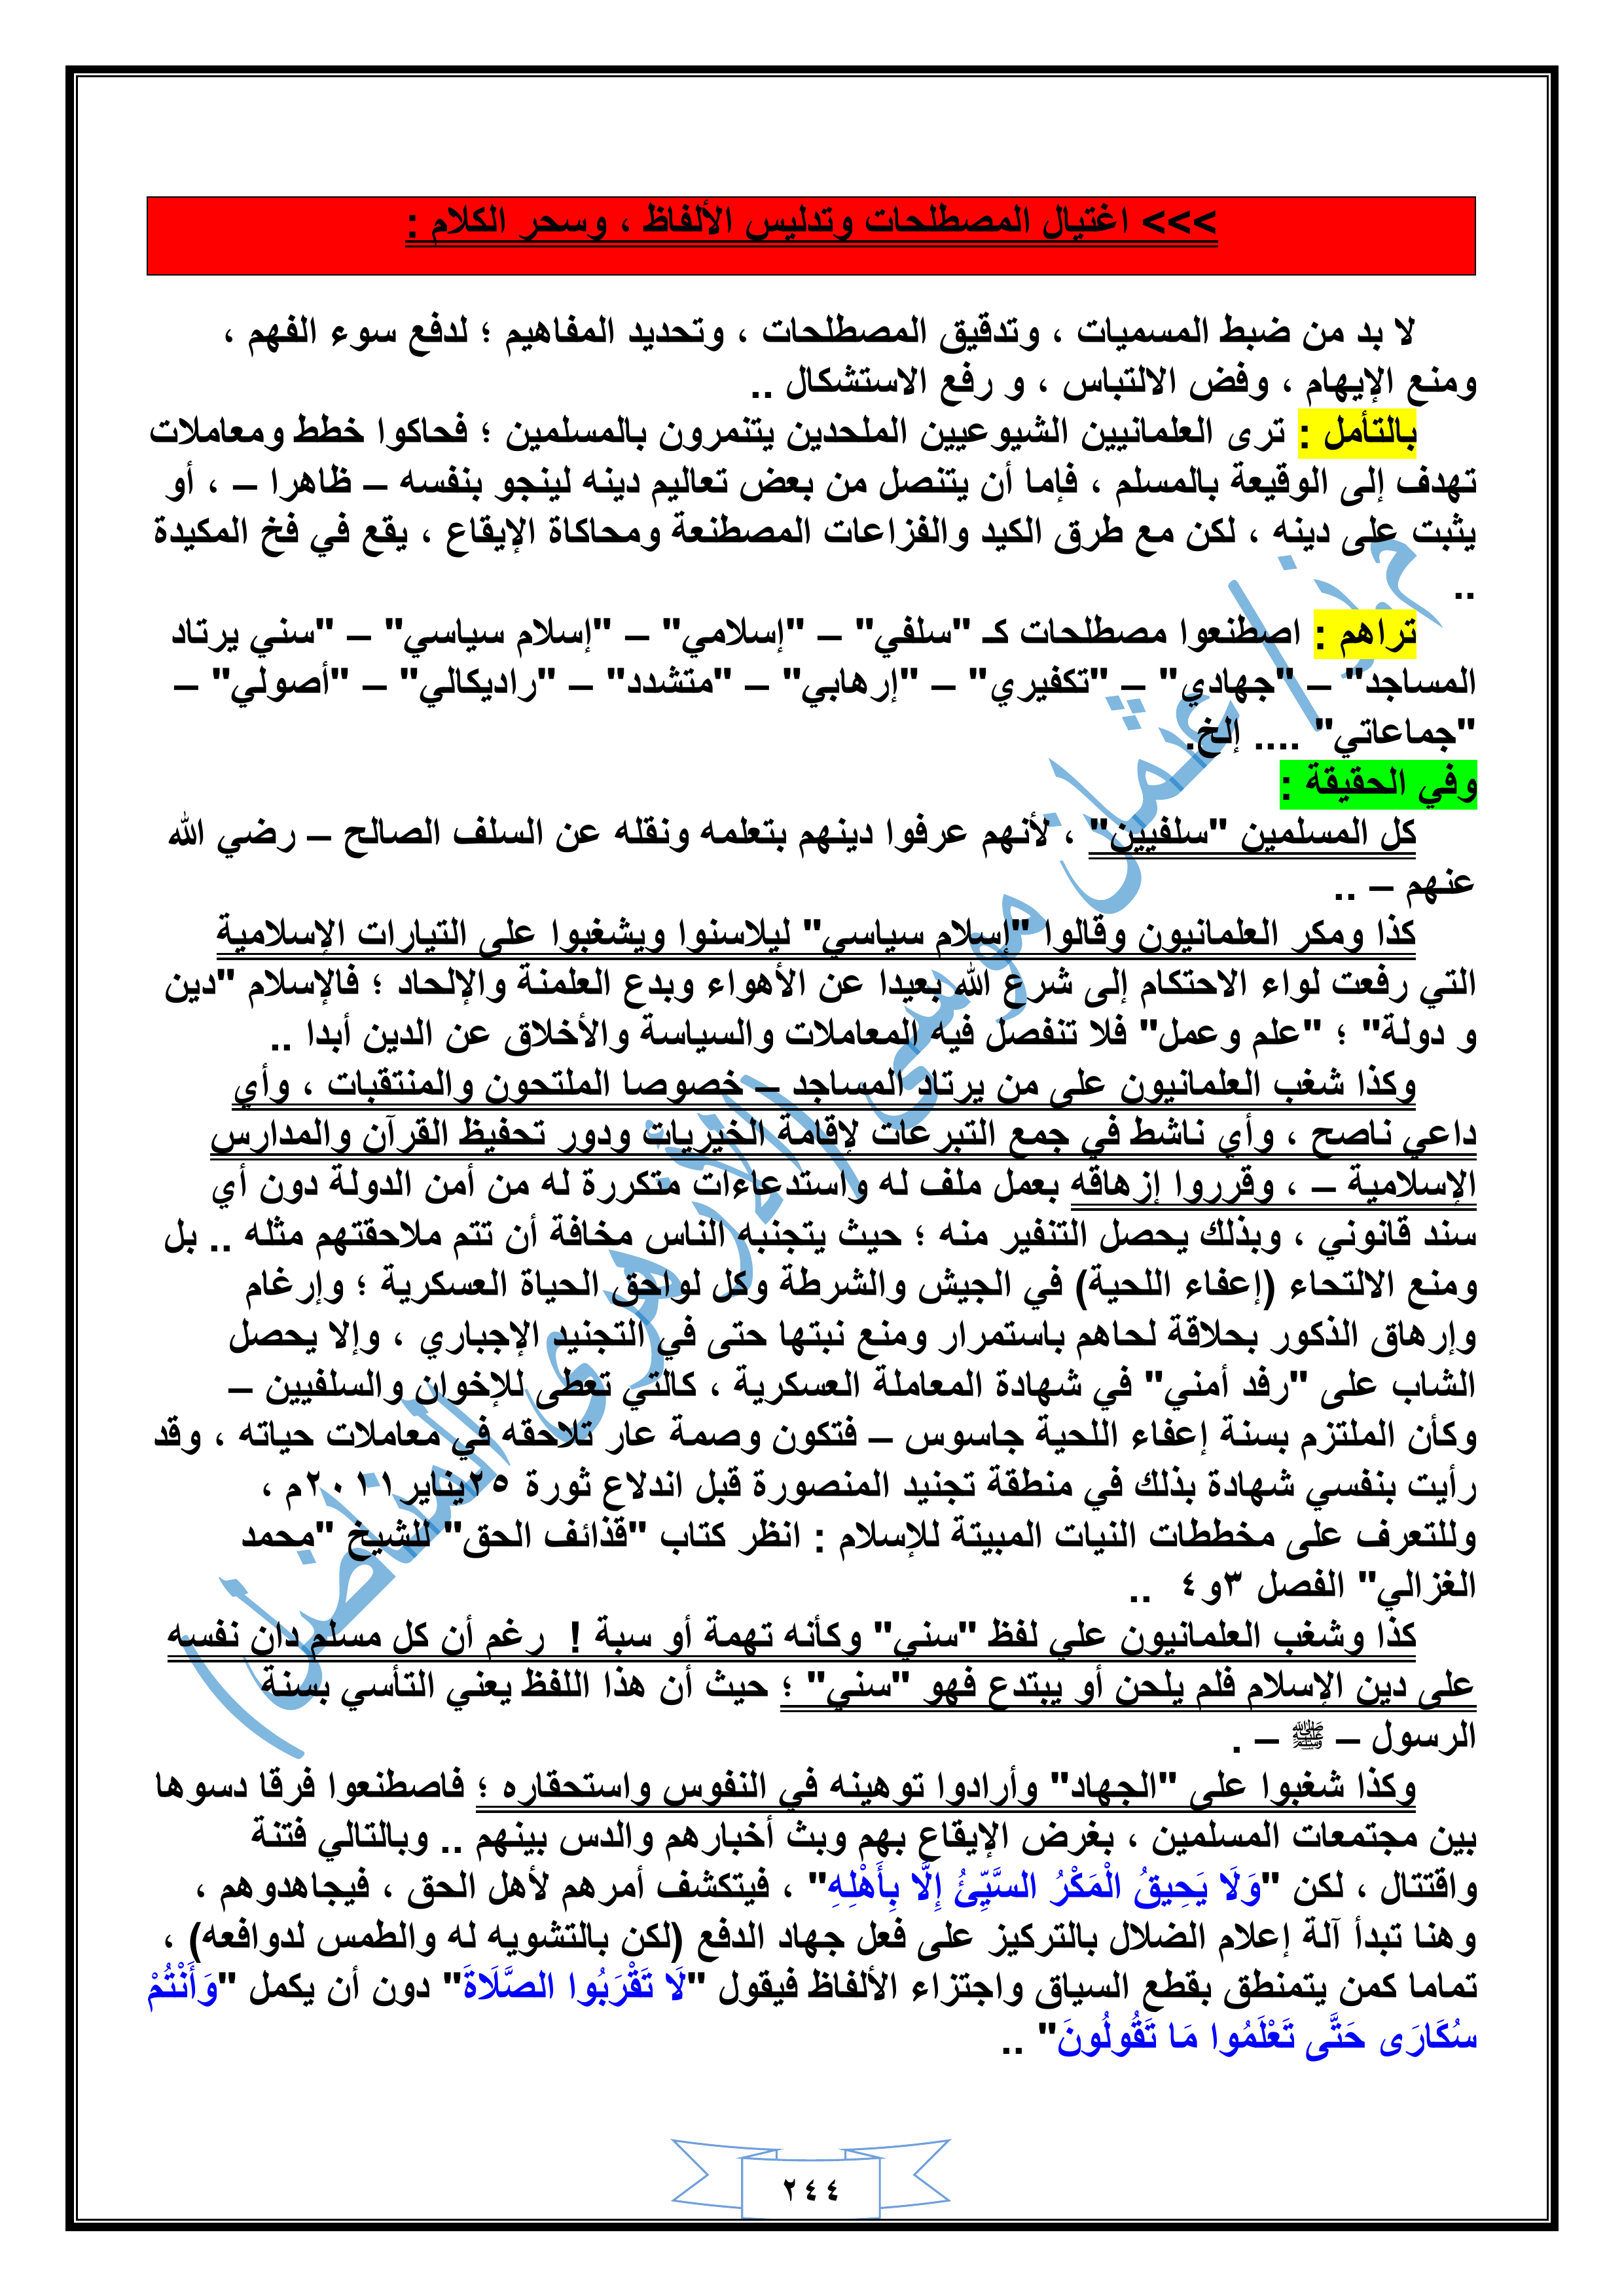 >>> اغتيال المصطلحات وتدليس الألفاظ ، وسحر الكلام :
لا بد من ضبط المسميات ، وتدقيق المصطلحات ، وتحديد المفاهيم ؛ لدفع سوء الفهم ،
ومنع الإيهام ، وفض الالتباس ، و رفع الاستشكال ..
بالتأمل : ترى العلمانيين الشيوعيين الملحدين يتنمرون بالمسلمين ؛ فحاكوا خطط ومعاملات
تهدف إلى الوقيعة بالمسلم ، فإما أن يتنصل من بعض تعاليم دينه لينجو بنفسه – ظاهرا – ، أو
يثبت على دينه ، لكن مع طرق الكيد والفزاعات المصطنعة ومحاكاة الإيقاع ، يقع في فخ المكيدة
..
تراهم : اصطنعوا مصطلحات كـ "سلفي" – "إسلامي" – "إسلام سياسي" – "سني يرتاد
المساجد" – "جهادي" – "تكفيري" – "إرهابي" – "متشدد" – "راديكالي" – "أصولي" –
"جماعاتي" .... إلخ.
وفي الحقيقة :
كل المسلمين "سلفيين" ، لأنهم عرفوا دينهم بتعلمه ونقله عن السلف الصالح – رضي الله
عنهم – ..
كذا ومكر العلمانيون وقالوا "إسلام سياسي" ليلاسنوا ويشغبوا على التيارات الإسلامية
التي رفعت لواء الاحتكام إلى شرع الله بعيدا عن الأهواء وبدع العلمنة والإلحاد ؛ فالإسلام "دين
و دولة" ؛ "علم وعمل" فلا تنفصل فيه المعاملات والسياسة والأخلاق عن الدين أبدا ..
وكذا شغب العلمانيون على من يرتاد المساجد – خصوصا الملتحون والمنتقبات ، وأي
داعي ناصح ، وأي ناشط في جمع التبرعات لإقامة الخيريات ودور تحفيظ القرآن والمدارس
الإسلامية – ، وقرروا إزهاقه بعمل ملف له واستدعاءات متكررة له من أمن الدولة دون أي
سند قانوني ، وبذلك يحصل التنفير منه ؛ حيث يتجنبه الناس مخافة أن تتم ملاحقتهم مثله .. بل
ومنع الالتحاء (إعفاء اللحية) في الجيش والشرطة وكل لواحق الحياة العسكرية ؛ وإرغام
وإرهاق الذكور بحلاقة لحاهم باستمرار ومنع نبتها حتى في التجنيد الإجباري ، وإلا يحصل
الشاب على "رفد أمني" في شهادة المعاملة العسكرية ، كالتي تعطى للإخوان والسلفيين –
وكأن الملتزم بسنة إعفاء اللحية جاسوس – فتكون وصمة عار تلاحقه في معاملات حياته ، وقد
رأيت بنفسي شهادة بذلك في منطقة تجنيد المنصورة قبل اندلاع ثورة ٢٥يناير٢٠١١م ،
وللتعرف على مخططات النيات المبيتة للإسلام : انظر كتاب "قذائف الحق" للشيخ "محمد
الغزالي" الفصل ٣و٤ ..
كذا وشغب العلمانيون علي لفظ "سني" وكأنه تهمة أو سبة ! رغم أن كل مسلم دان نفسه
على دين الإسلام فلم يلحن أو يبتدع فهو "سني" ؛ حيث أن هذا اللفظ يعني التأسي بسنة
الرسول – ﷺ – .
وكذا شغبوا على "الجهاد" وأرادوا توهينه في النفوس واستحقاره ؛ فاصطنعوا فرقا دسوها
بين مجتمعات المسلمين ، بغرض الإيقاع بهم وبث أخبارهم والدس بينهم .. وبالتالي فتنة
واقتتال ، لكن "وَلَا يَحِيقُ الْمَكْرُ السَّيِّئُ إِلَّا بِأَهْلِهِ" ، فيتكشف أمرهم لأهل الحق ، فيجاهدوهم ،
وهنا تبدأ آلة إعلام الضلال بالتركيز على فعل جهاد الدفع (لكن بالتشويه له والطمس لدوافعه) ،
تماما كمن يتمنطق بقطع السياق واجتزاء الألفاظ فيقول "لَا تَقْرَبُوا الصَّلَاةَ" دون أن يكمل "وَأَنْتُمْ
سُكَارَى حَتَّى تَعْلَمُوا مَا تَقُولُونَ" ..
عمرو / عثمان موسى (الأزهرى المناضل)
٢٤٤